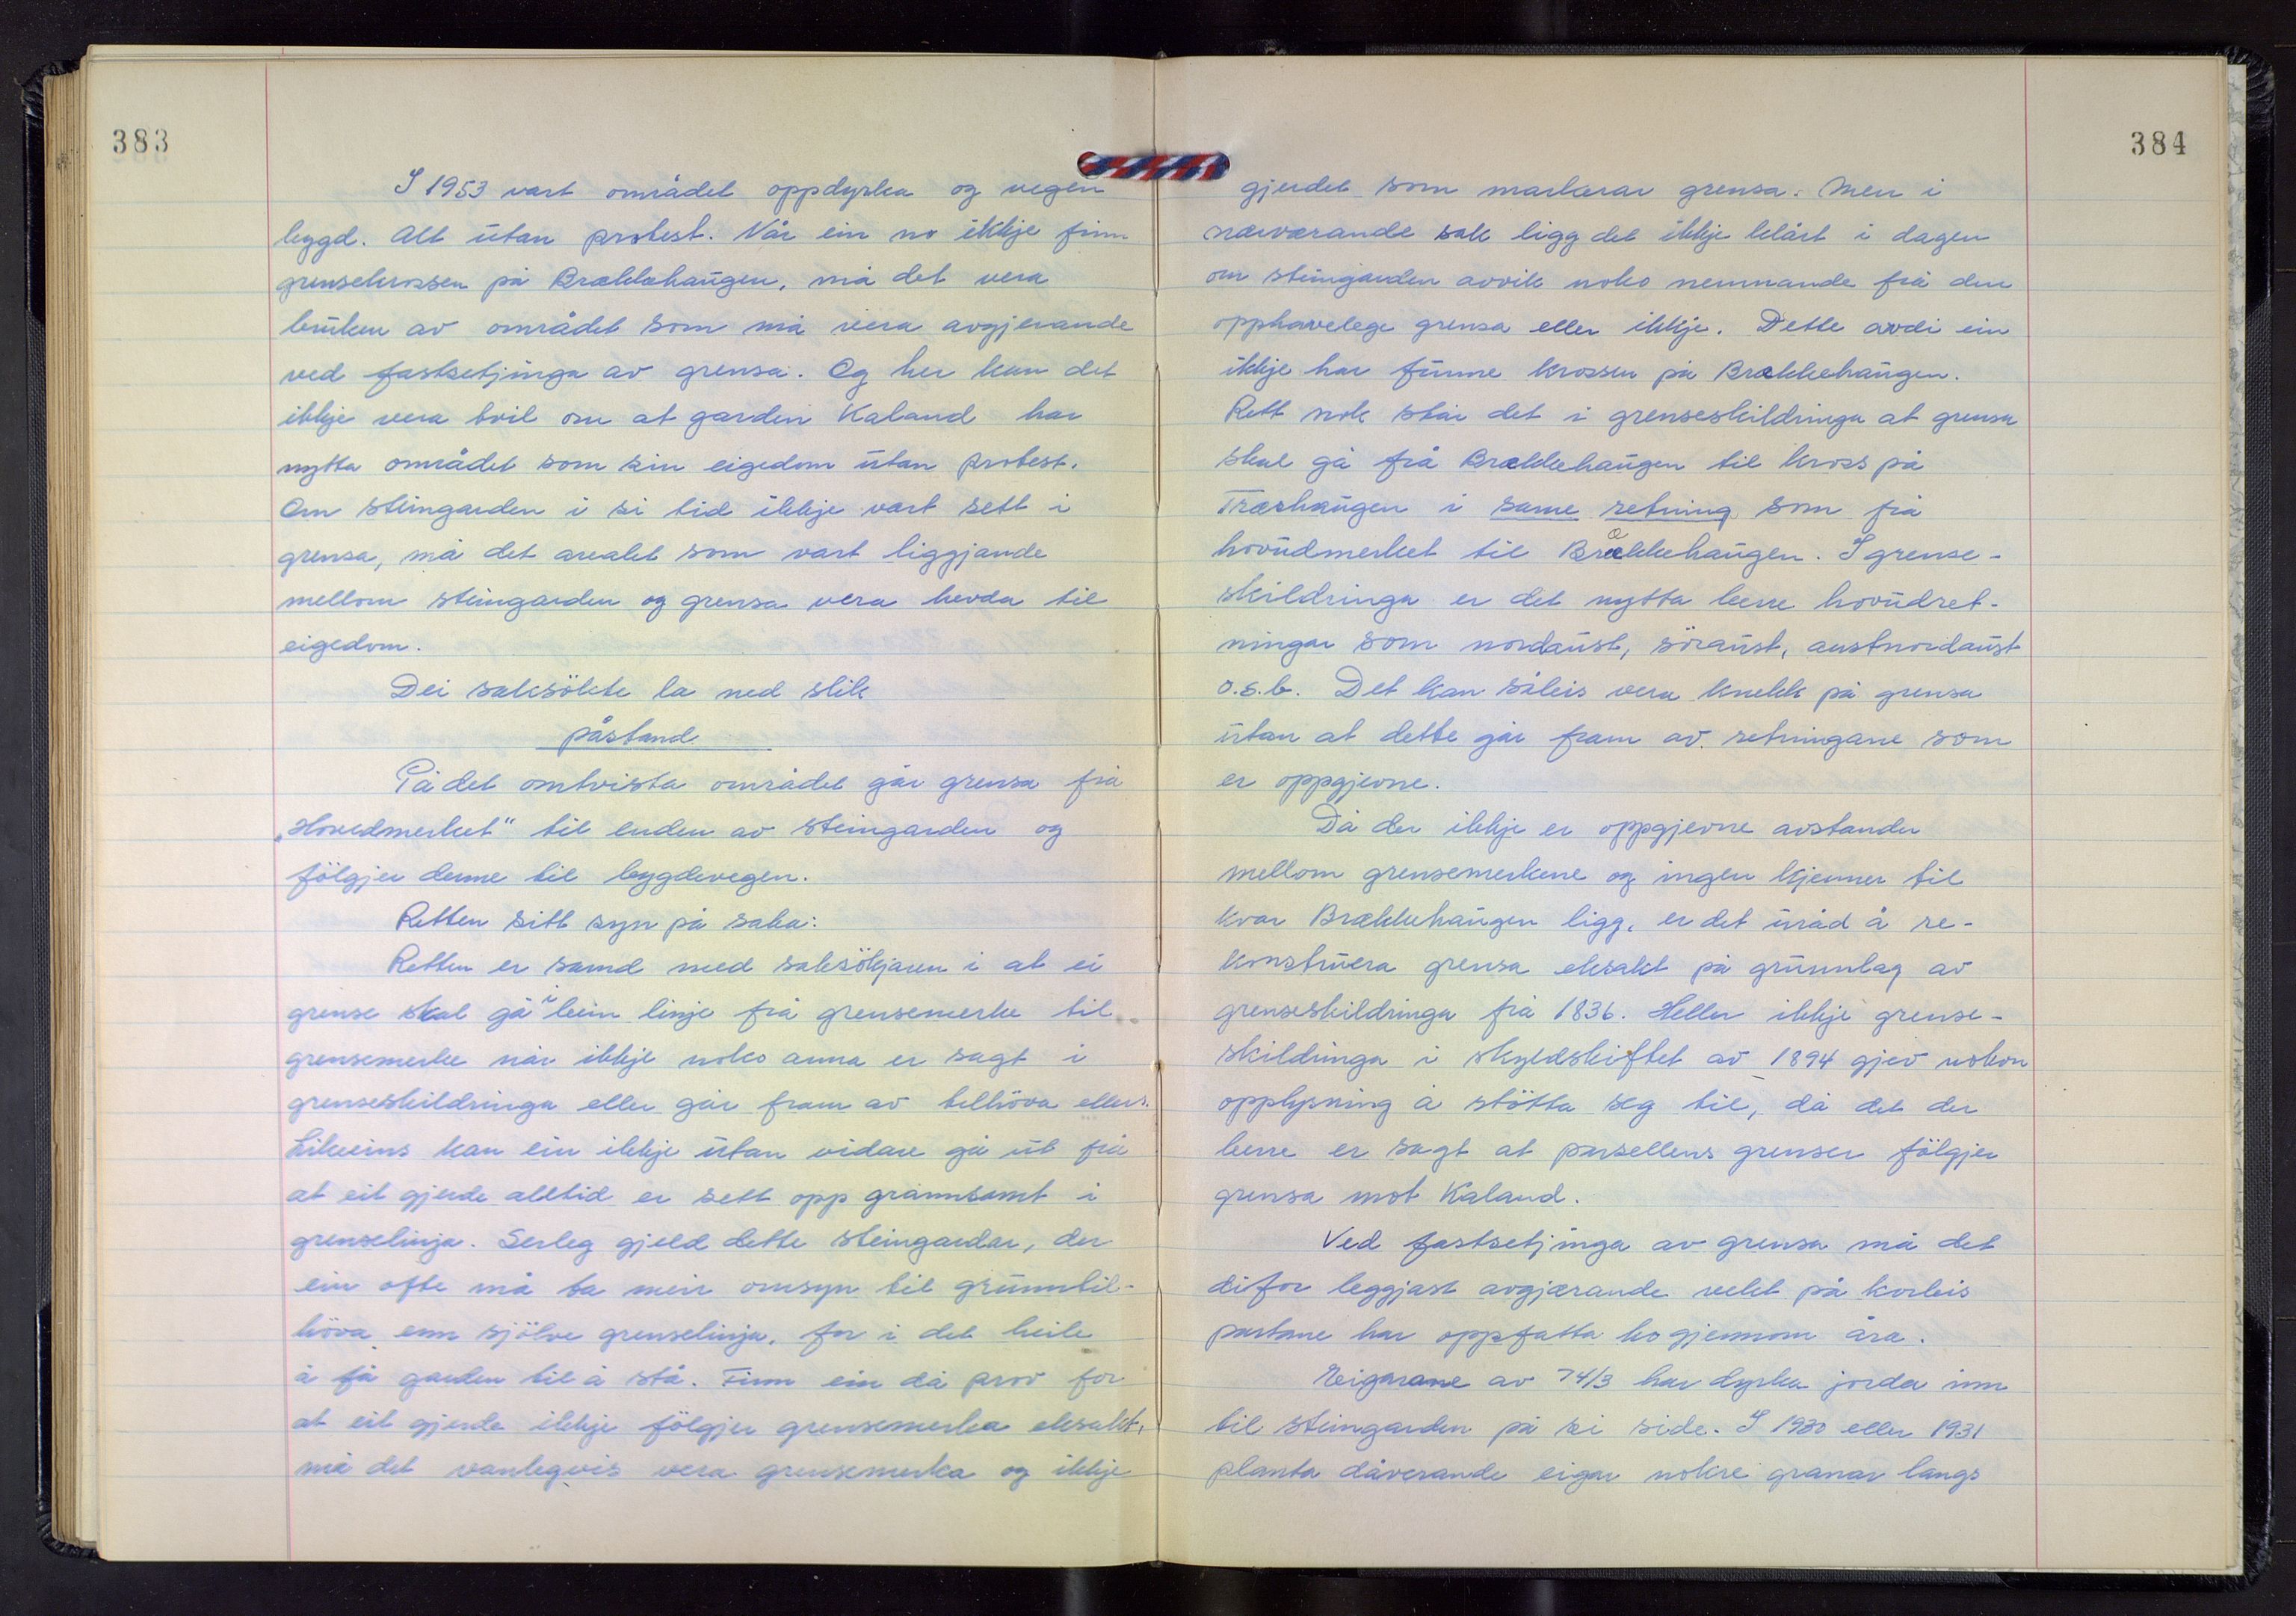 383
I 1953 vart området oppdyrka og vegen
bygd. Alt utan protest. Når ein no ikkje finn
grensekrossen på Brækkehaugen, må det vera
bruken av området som må vera avgjerande
ved fastsetjinga av grensa. Og her kan det
ikkje vera tvil om at garden Kaland har
nytta området som sin eigedom utan protest.
Om steingarden i si tid ikkje vart sett i
grensa, må det arealet som vart liggjande
mellom steingarden og grensa vera hevda til
eigedom.
Dei saksökte la ned slik
påstand
På det omtvista området går grensa frå
„Hovedmerket" til enden av steingarden og
fölgjer denne til bygdevegen.
Retten sitt syn på saka:
Retten er samd med saksökjaren i at ei
grense skal gå i bein linje frå grensemerke til
grensemerke når ikkje noko anna er sagt i
grenseskildringa eller går fram av tilhöva ellers.
Likeeins kan ein ikkje utan vidare gå ut frå
at eit gjerde alltid er sett opp grannsamt i
grenselinja. Serleg gjeld dette steingardar, der
ein ofte må ta meir omsyn til grunntil-
höva enn sjölve grenselinja, for i det heile
å få garden til å stå. Finn ein då prov for
at eit gjerde ikkje fölgjer grensemerka eksakt,
må det vanlegvis vera grensemerka og ikkje
384
gjerdet som markerar grensa. Men i
nærværande sak ligg det ikkje klårt i dagen
om steingarden avvik noko nemnande frå den
opphavelege grensa eller ikkje. Dette avdi ein
ikkje har funne krossen på Brekkehaugen.
Rett nok står det i grenseskildringa at grensa
skal gå frå Brekkehaugen til kross på
Træshaugen i same retning som frå
hovudmerket til Brækkehaugen. I grense-
skildringa er det nytta berre hovudret-
ningar som nordaust, söraust, austnordaust
o.s.b. Det kan såleis vera knekk på grensa
utan at dette går fram av retningane som
er oppgjevne.
Då der ikkje er oppgjevne avstandar
mellom grensemerkene og ingen kjenner til
kvar Brækkehaugen ligg, er det uråd å re-
konstruera grensa eksakt på grunnlag av
grenseskildringa frå 1836. Heller ikkje grense-
skildringa i skyldskiftet av 1894 gjev nokon
opplysning å stötta seg til, då det der
berre er sagt at parsellens grenser fölgjer
grensa mot Kaland.
Ved fastsetjinga av grensa må det
difor leggjast avgjærande vekt på korleis
partane har oppfatta ho gjennom åra.
Eigarane av 74/3 har dyrka jorda inn
til steingarden på si side. I 1930 eller 1931
planta dåverande eigar nokre granar langs